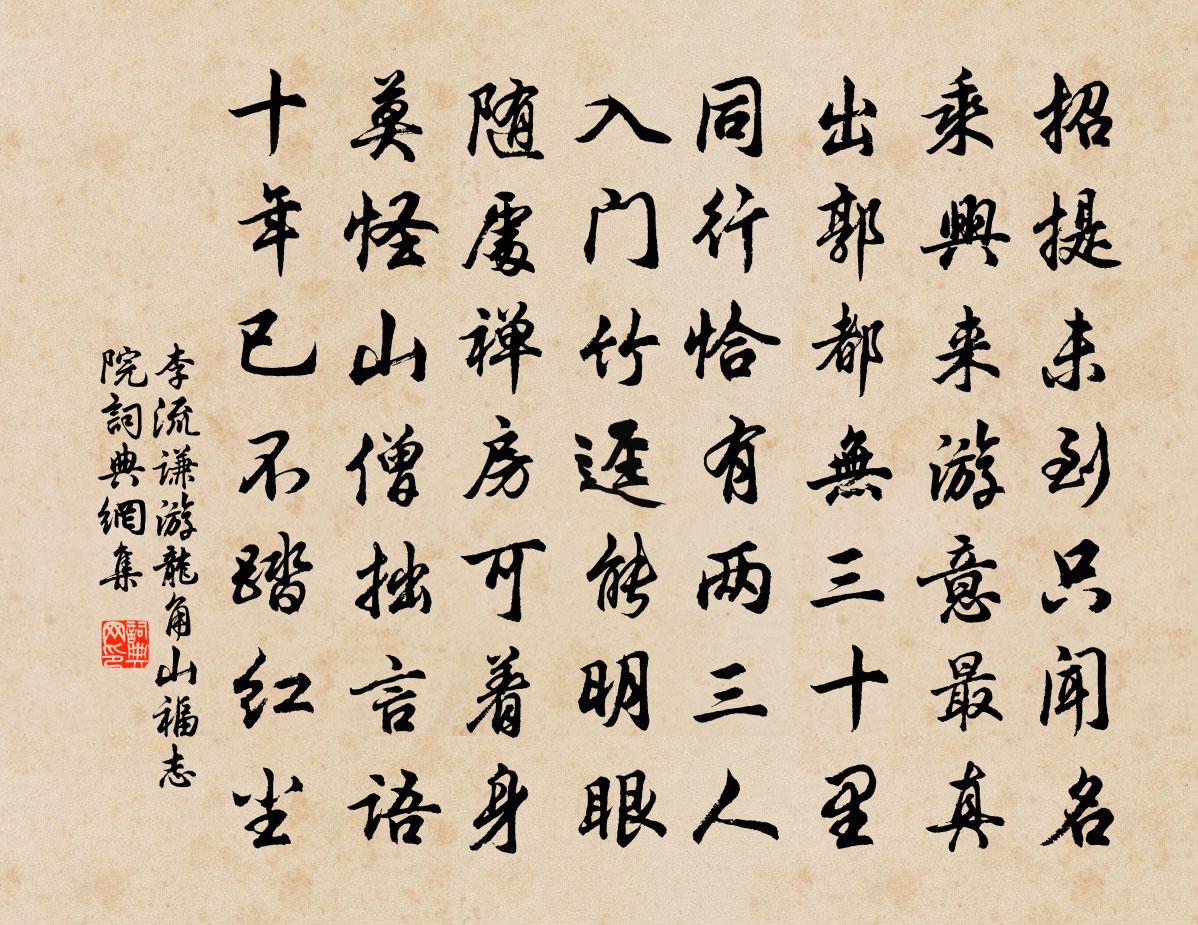 招提未到只闻名
乘興来游意最真
出郭都無三十里
同行恰有两三人
入门竹逕能明眼
随處禅房可着身
莫怪山僧拙言语
十年已不踏红尘
李流谦游龍角山福志
院詞典網集
詞典
网印